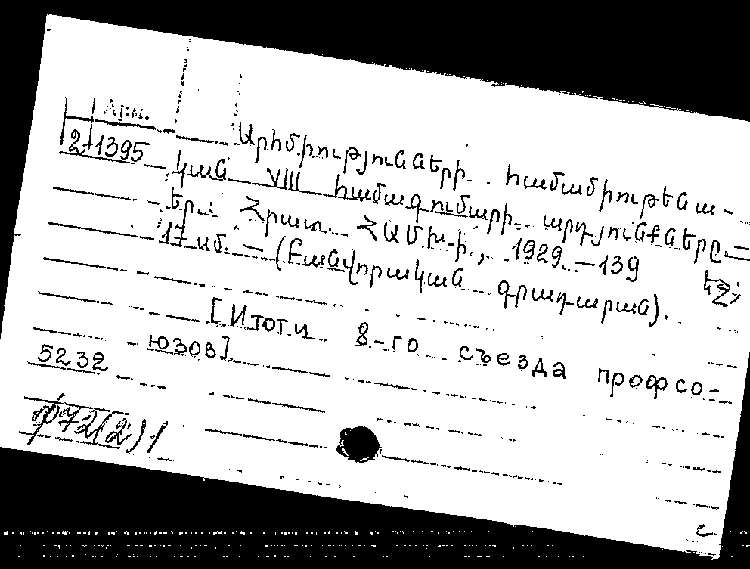 Арм.
2-1395
Արհմիությունների համամիութենա-
կան VIII համագումարի արդյունքները.—
Եր.: Հրատ. ՀԱՄԽ-ի, 1929.—139 էջ;
17 սմ. — (Բանվորական գրադարան).
[Итоги 8-го съезда профсо-
юзов]
5232
ф72(2)1
с